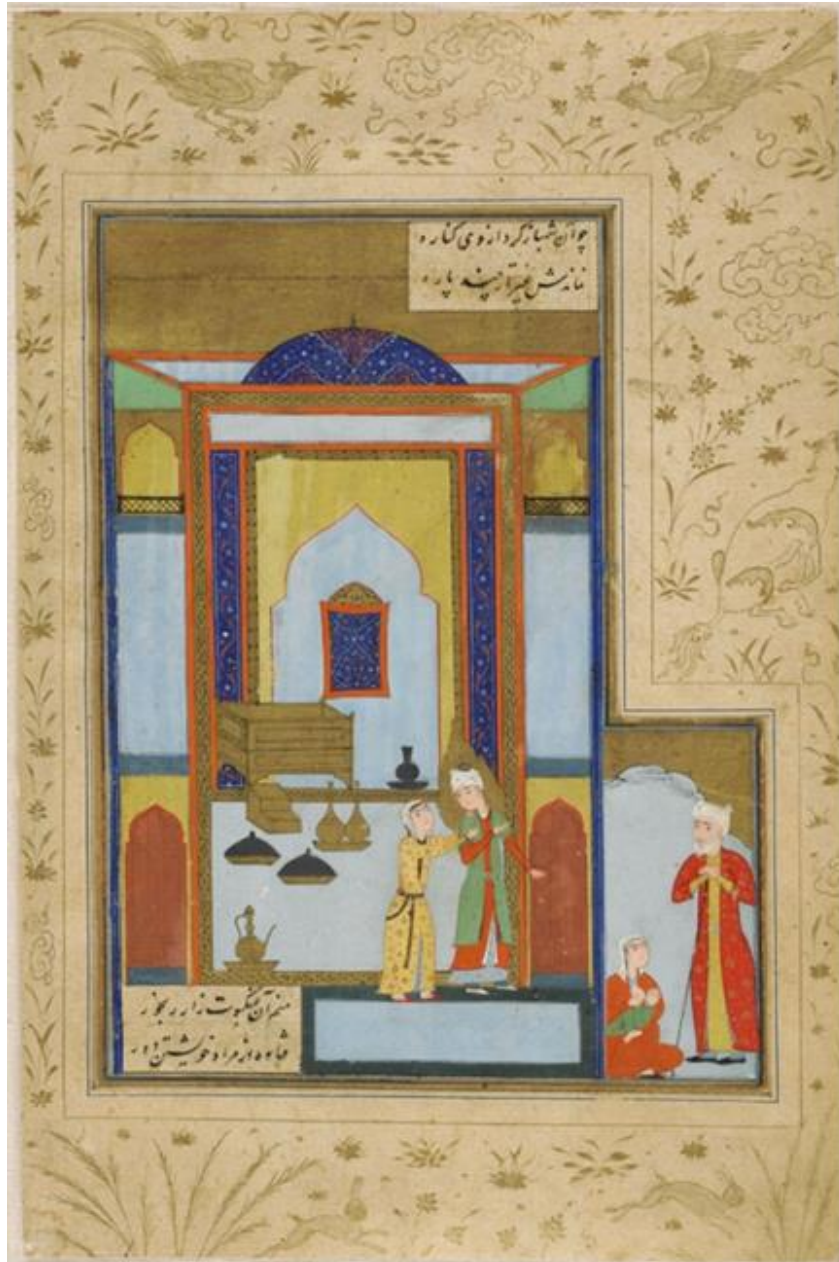 چو آن شهباز کرد از وی کناره
نماندش غیر تار چند پاره
منم آن عنکبوت زار رنجور
فتاده از مراد خویشتن دور